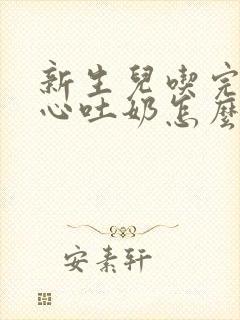 新生兒喫完
心吐奶怎麼
安素轩